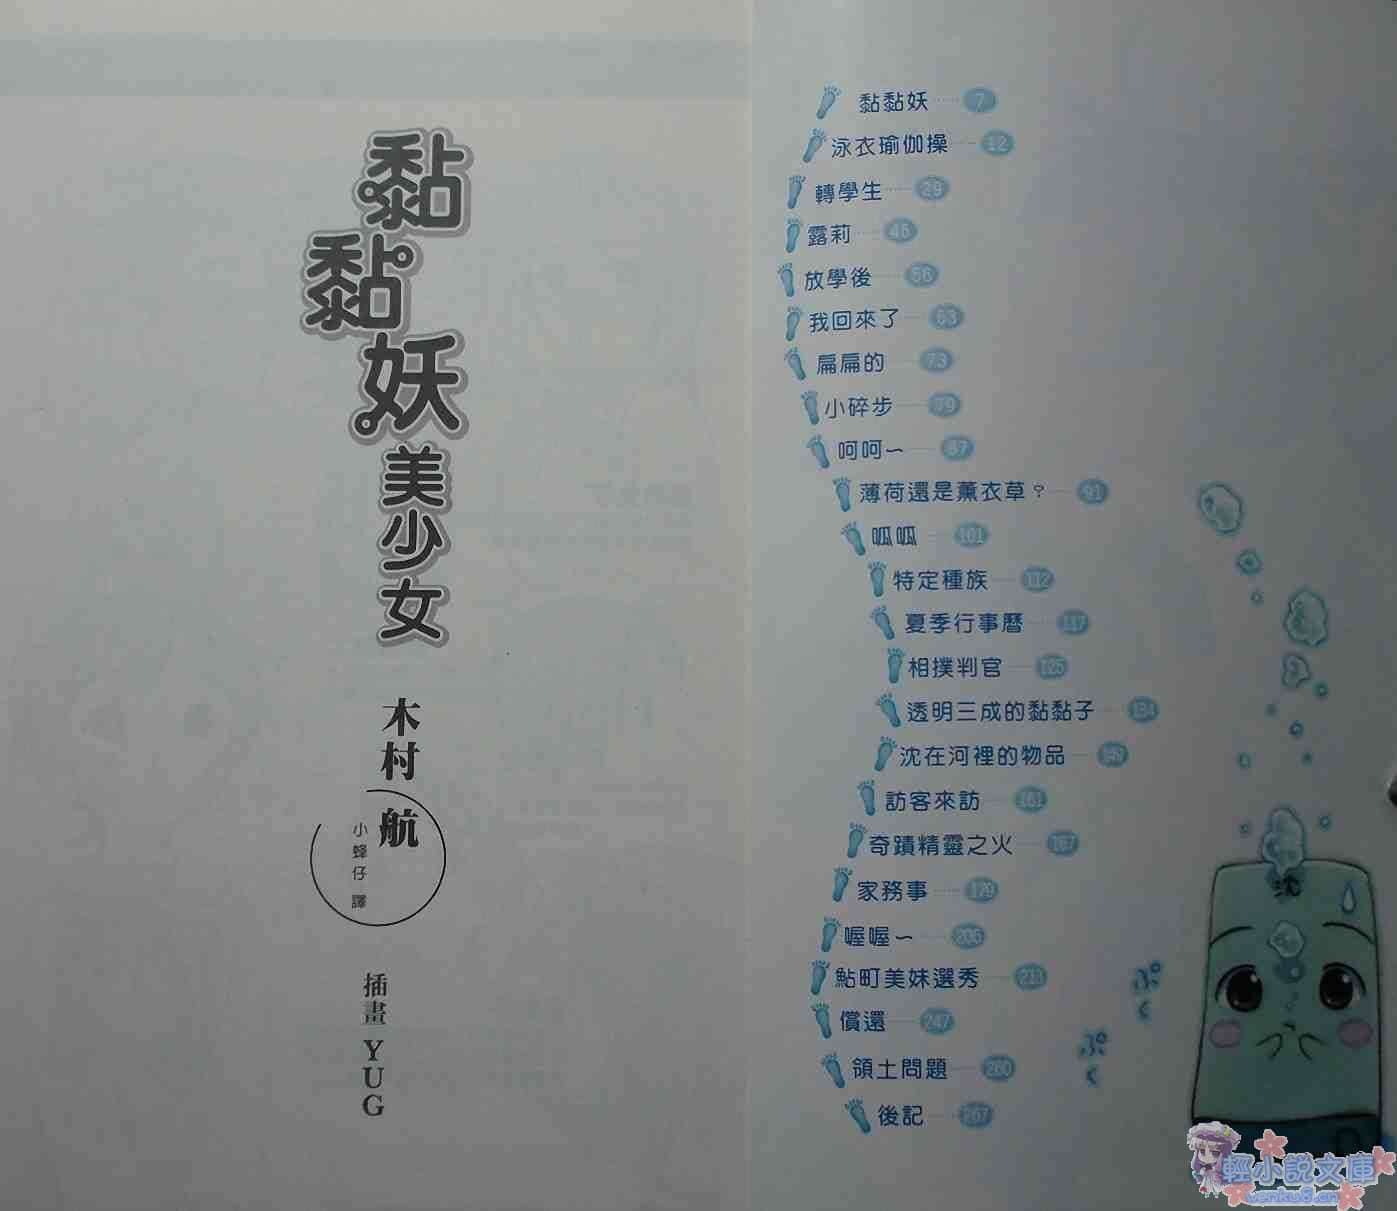 黏黏妖美少女
木村 航
小蜂仔 譯
插畫 YUG
黏黏妖 7
泳衣瑜伽操 12
轉學生 29
露莉 46
放學後 56
我回來了 63
扁扁的 73
小碎步 79
呵呵~ 87
薄荷還是薰衣草? 91
呱呱 101
特定種族 112
夏季行事曆 117
相撲判官 125
透明三成的黏黏子 134
沈在河裡的物品
訪客來訪 161
奇蹟精靈之火 167
家務事 179
喔喔~ 206
鮎町美妹選秀 213
償還 247
領土問題 260
後記 267
沈
ぷく
ぷく
輕小說文庫
wenku8.cn